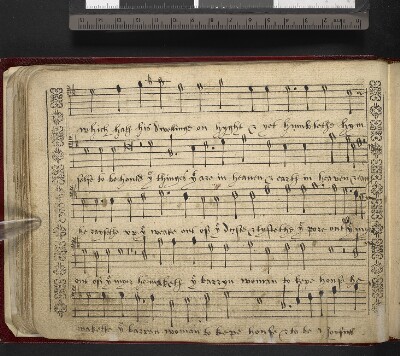 which hath his dwellinge on hyght & yet humbleth hym
selfe to behould yͤ thinges yͭ are in heaven & earth in heaven & ear
he rayseth up yͤ weake out of yͤ duste & lyfteth yͤ pore out yͤ my
out of yͤ myer he maketh yͤ barryn woman to kepe house he
maketh yͤ barran woman to kepe house & to be a joyfull